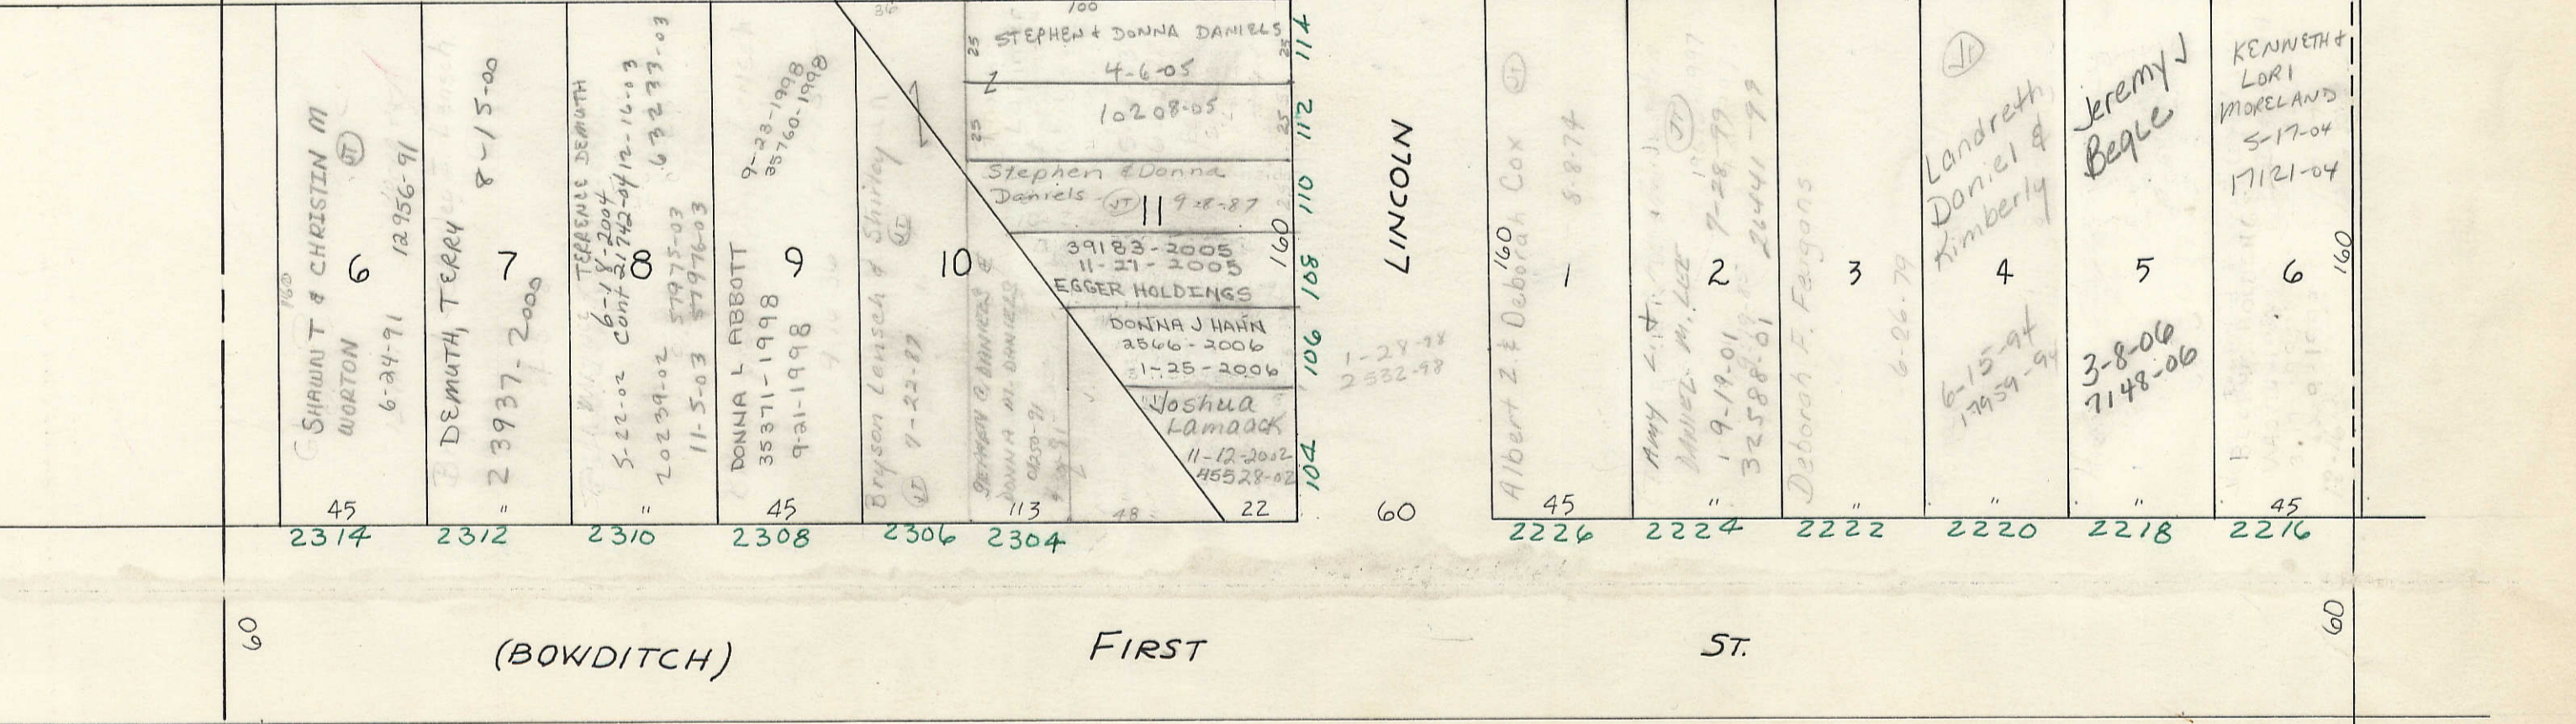 SHAWN T & CHRISTIN M
WORTON
JT
6-24-91
12956-91
160
6
45
2314
DEMUTH, TERRY
8-15-00
23937-2000
7
"
2312
TERRENCE DEMUTH
6-18-2004
Cont 21742-04
12-16-03
63233-03
57975-03
57976-03
5-22-02
20239-02
11-5-03
8
"
2310
9-23-1998
35760-1998
DONNA L ABBOTT
35371-1998
9-21-1998
9
45
2308
36
Bryson Lonsch & Shirley
JT
JT 7-22-87
10
2306
STEPHEN & DANIELS &
DONNA M. DANIELS
113
48
2304
100
25 STEPHEN & DONNA DANIELS 25
4-6-05
114
Z
10208-05
25 25
112
Stephen & Donna
Daniels JT 11 9-8-87
110
160
39183-2005
11-21-2005
EGGER HOLDINGS
108
DONNA J HAHN
2566-2006
1-25-2006
106
Joshua
Lamaack
11-12-2002
45528-02
104
22
LINCOLN
1-28-98
2532-98
60
Albert Z & Deborah Cox JT
8-8-74
160
1
45
2226
JT
DANIEL M. LEE
7-28-99
26441-99
9-19-01
32588-01
2
"
2224
Deborah F. Feigans
6-26-79
3
"
2222
JT
Landreth
Daniel &
Kimberly
4
6-15-94
17959-94
"
2220
Jeremy J
Begle
5
3-8-06
7148-06
"
2218
KENNETH &
LORI
MORELAND
5-17-04
17121-04
6
160
45
2216
60 (BOWDITCH) FIRST ST. 60